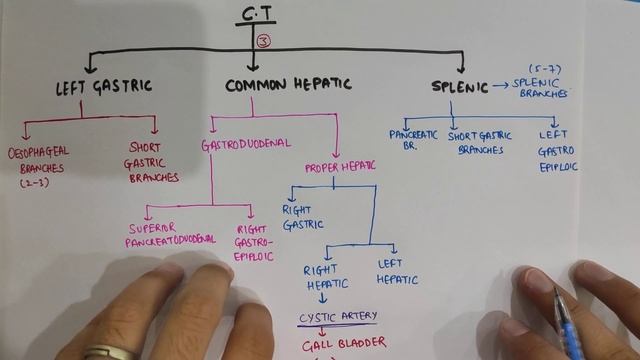 C.T
3
LEFT GASTRIC
COMMON HEPATIC
SPLENIC → SPLENIC
BRANCHES
(5-7)
OESOPHAGEAL
BRANCHES
(2-3)
SHORT
GASTRIC
BRANCHES
GASTRODUODENAL
PROPER HEPATIC
PANCREATIC
BR.
SHORT GASTRIC
BRANCHES
LEFT
GASTRO
EPIPLOIC
SUPERIOR
PANCREATODUODENAL
RIGHT
GASTRO-
EPIPLOIC
RIGHT
GASTRIC
RIGHT
HEPATIC
LEFT
HEPATIC
CYSTIC ARTERY
GALL BLADDER